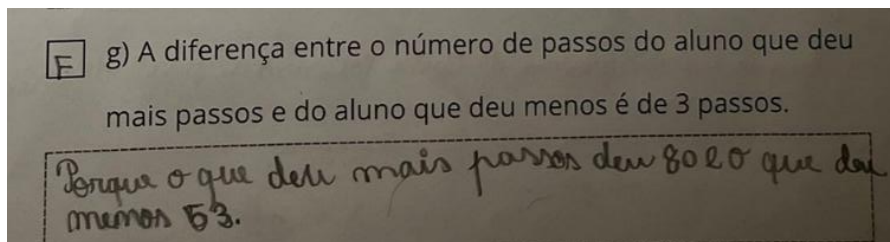 F g) A diferença entre o número de passos do aluno que deu
mais passos e do aluno que deu menos é de 3 passos.
Porque o que deu mais passos deu 80 e o que deu
menos 53.